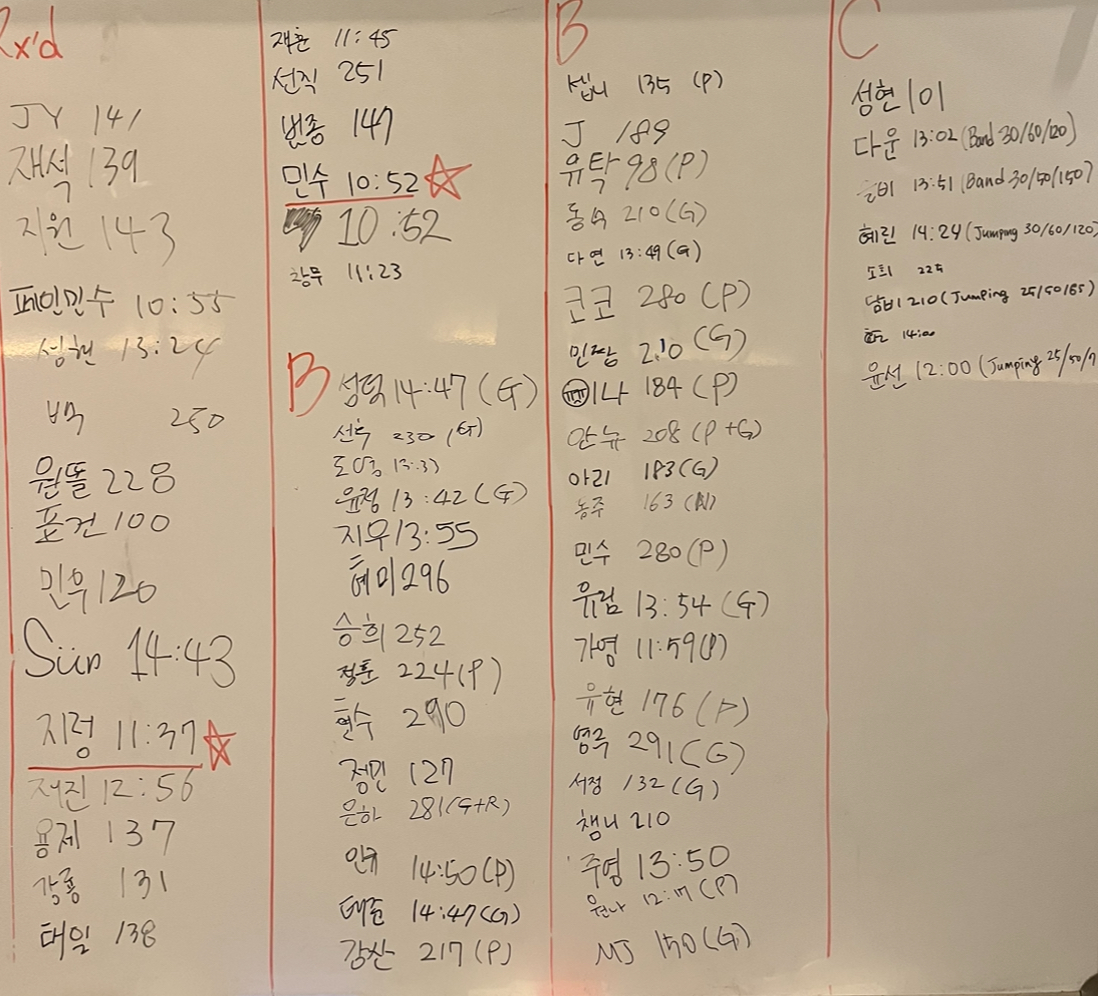 Rx'd
JY 141
재석 139
지원 143
페인민수 10:55
성현 13:24
벅 250
원똘 228
표건 100
민우 120
Sün 14:43
지정 11:37
저진 12:56
용제 137
강룡 131
태일 138
재훈 11:45
선직 251
번종 147
민수 10:52
10:52
창무 11:23
B
성덕 14:47 (G)
선후 230 (G)
도영 13:33
윤정 13:42 (G)
지우 13:55
혜미 296
승희 252
정훈 224 (P)
현수 290
정민 127
은하 281 (G+R)
안규 14:50 (P)
태준 14:47 (G)
강산 217 (P)
B
셉니 135 (P)
J 189
유탁 98 (P)
동석 210 (G)
다연 13:49 (G)
코코 280 (P)
민짱 210 (G)
이나 184 (P)
안뉴 208 (P+G)
아리 183 (G)
농주 163
민수 280 (P)
유림 13:54 (G)
가영 11:59 (P)
유현 176 (P)
영주 291 (G)
서정 132 (G)
챔니 210
주영 13:50
원나 12:17 (P)
MJ 150 (G)
C
성현 101
다운 13:02 (Band 30/60/120)
13:51 (Band 30/50/150)
혜린 14:24 (Jumping 30/60/120)
소희 225
담비 210 (Jumping 25/50/65)
14:00
윤선 12:00 (Jumping 25/50/7